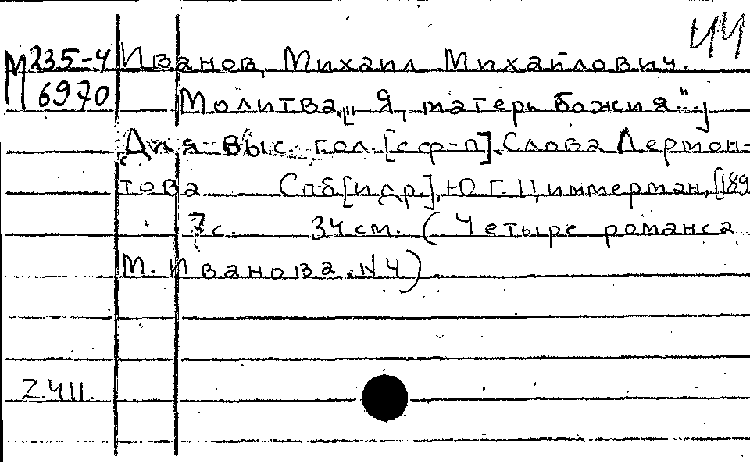 44
М 235-4 Иванов, Михаил Михайлович.
6970 Молитва „Я, матерь божия";
Для выс. гол. [с ф-п]. Слова Лермон-
това Спб [и др.], Ю.Г. Циммерман, [189
7 с. 34 см. (Четыре романса
М. Иванова. N4)
Z.411.